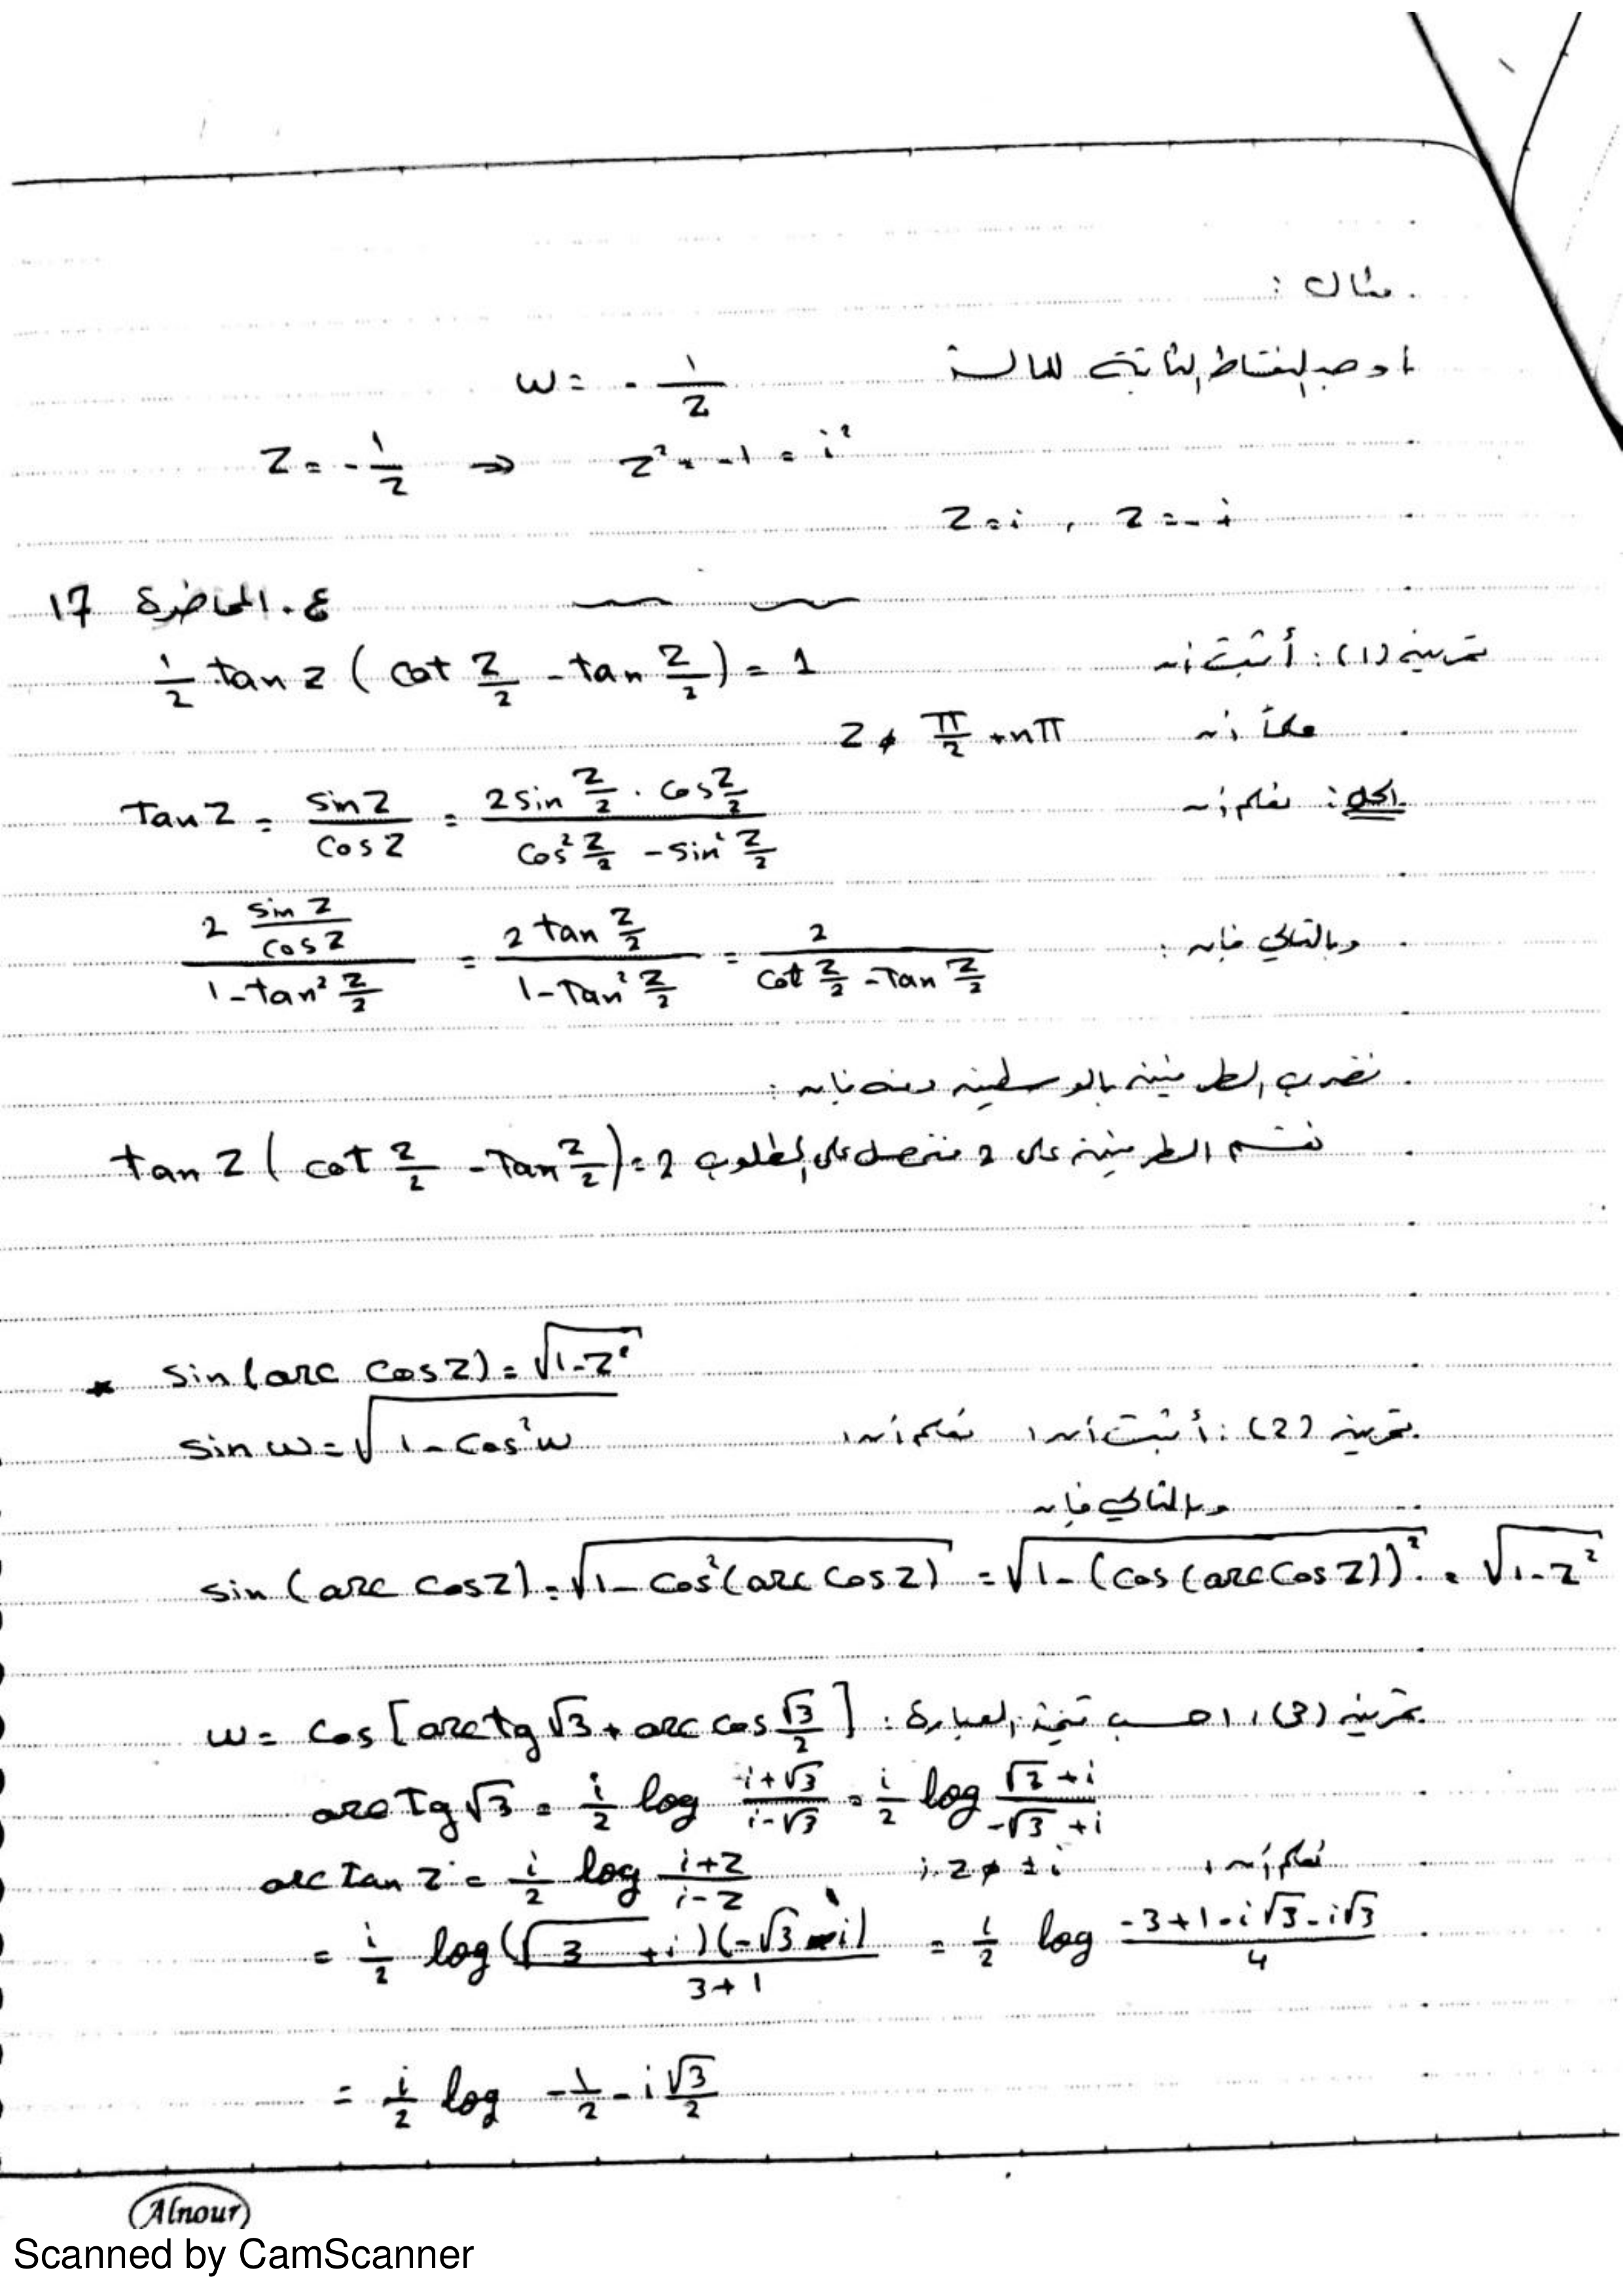 مثال :
أوجد النقاط الثابتة للدالة w = - 1/z
z = - 1/z ⇒ z² = -1 = i²
z = i , z = - i
ع. المحاضرة 17
تمرين (1): أثبت أن 1/2 tan z ( cot z/2 - tan z/2 ) = 1
علماً أن z ≠ π/2 + nπ
الحل: نعلم أن Tan z = sin z / cos z = 2 sin z/2 . cos z/2 / cos² z/2 - sin² z/2
وبالتالي فإن : 2 sin z/cos z / 1 - tan² z/2 = 2 tan z/2 / 1 - Tan² z/2 = 2 / cot z/2 - Tan z/2
نضرب الطرفين بالوسطين ومنه فإن :
tan z ( cot z/2 - Tan z/2 ) = 2 نقسم الطرفين على 2 فنحصل على المطلوب
* sin (arc cos z) = √1-z²
تمرين (2): أثبت أن نعلم أن sin w = √1 - cos² w
وبالتالي فإن
sin (arc cos z) = √1 - cos² (arc cos z) = √1 - (cos (arc cos z))² = √1-z²
تمرين (3): احسب قيمة العبارة : w = cos [ arctg √3 + arc cos √3/2 ]
arc Tg √3 = i/2 log i+√3 / i-√3 = i/2 log √3+i / -√3+i
نعلم أن arc Tan z = i/2 log i+z / i-z ; z ≠ ± i
= i/2 log (√3 + i)(-√3 - i) / 3+1 = i/2 log -3+1-i√3-i√3 / 4
= i/2 log -1/2 - i √3/2
Alnour
Scanned by CamScanner